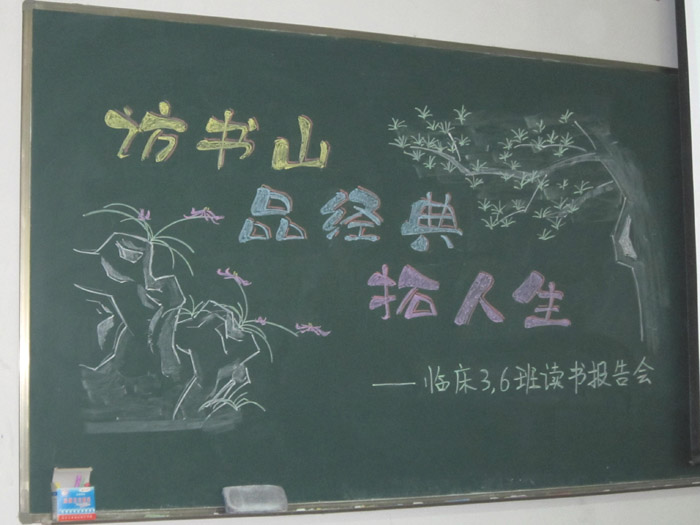 访书山
品经典
拓人生
——临床3,6班读书报告会